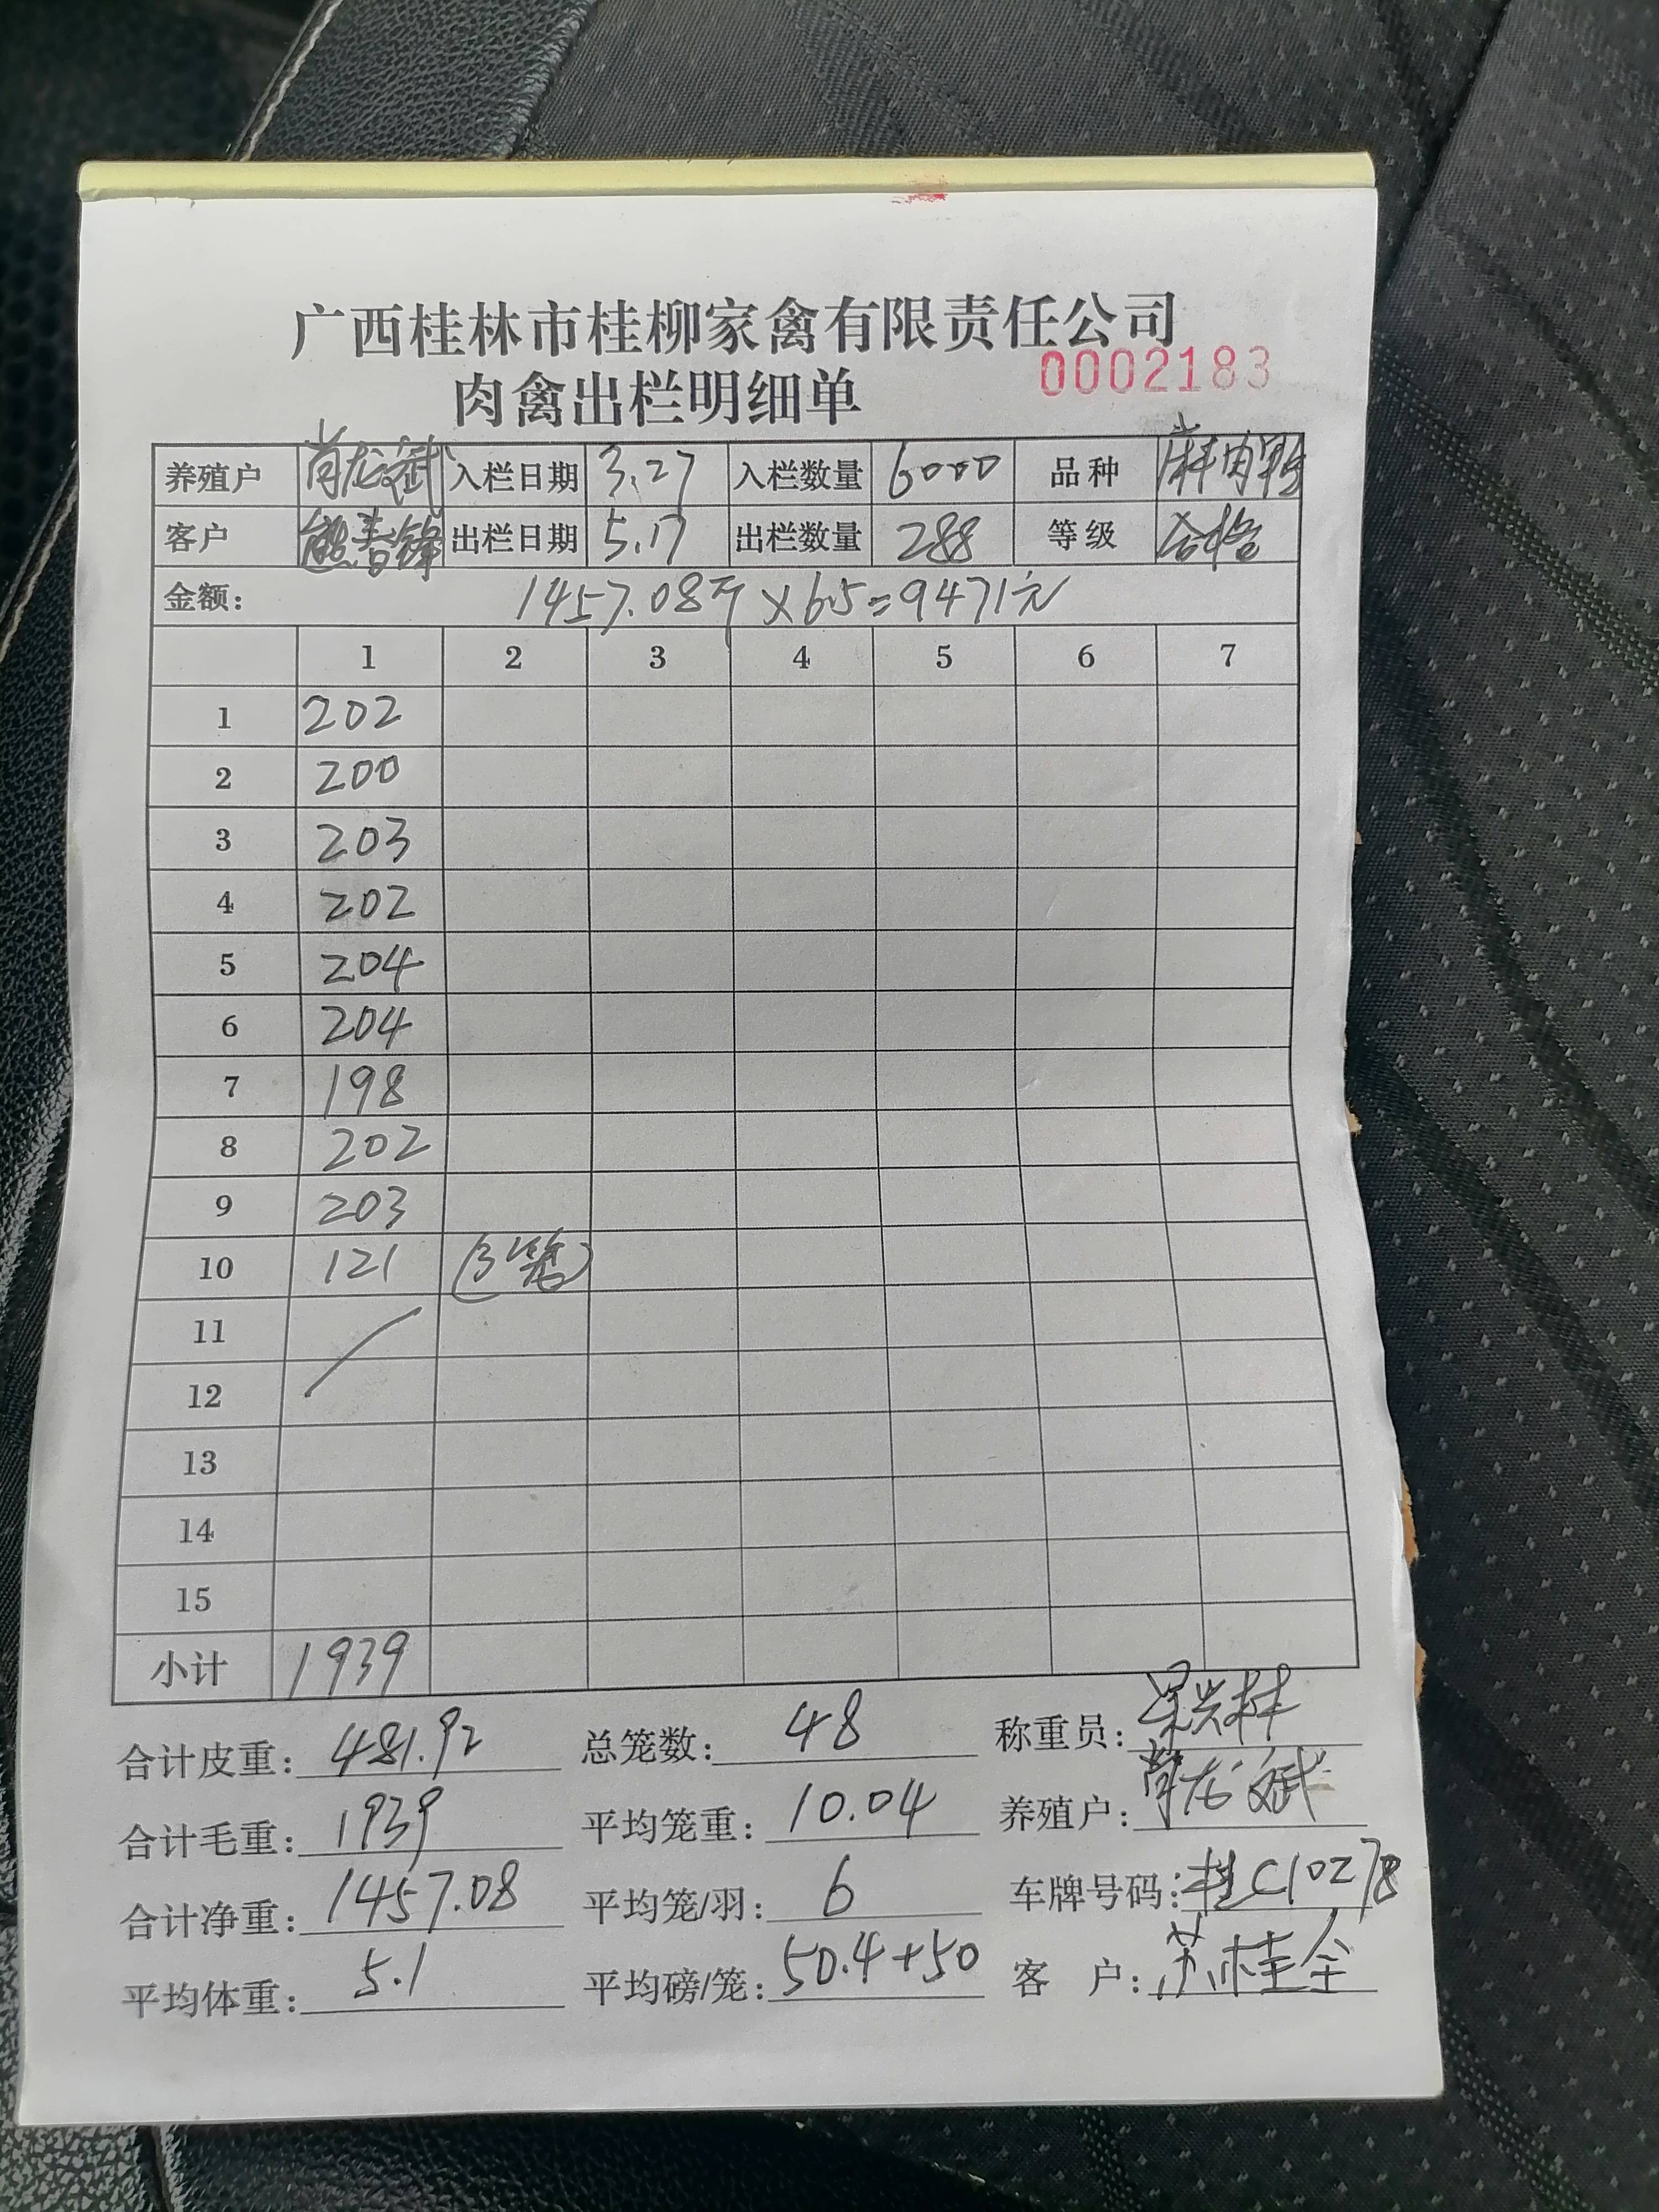 广西桂林市桂柳家禽有限责任公司
肉禽出栏明细单 0002183
养殖户 肖龙斌 入栏日期 3.27 入栏数量 6000 品种 麻肉鸭
客户 熊春锋 出栏日期 5.17 出栏数量 288 等级 合格
金额: 1457.08斤×6.5=9471元
1 2 3 4 5 6 7
1 202
2 200
3 203
4 202
5 204
6 204
7 198
8 202
9 203
10 121 (3笼)
11
12
13
14
15
小计 1939
合计皮重: 481.92 总笼数: 48 称重员:
合计毛重: 1939 平均笼重: 10.04 养殖户: 肖龙斌
合计净重: 1457.08 平均笼/羽: 6 车牌号码: 桂C10278
平均体重: 5.1 平均磅/笼: 50.4+50 客户: 苏桂全